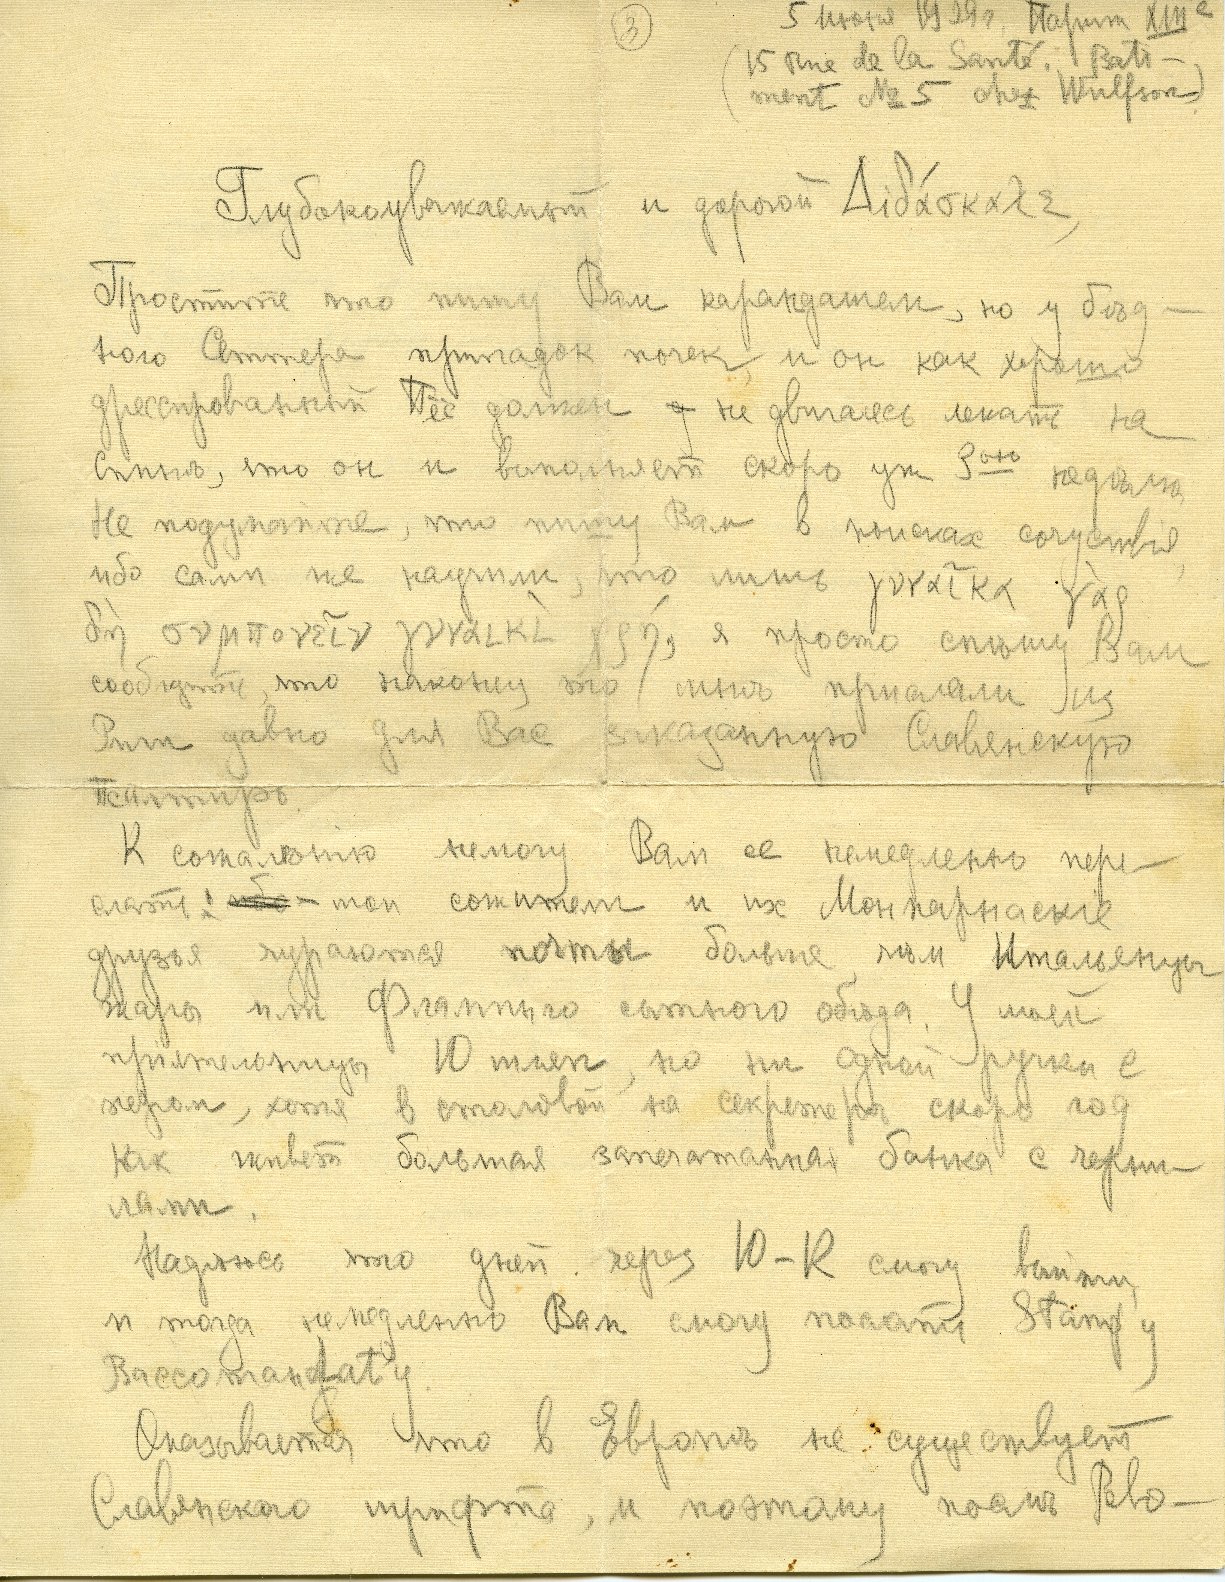 3
5 июня 1929г. Париж XIIIe
(15 Rue de la Santé. Bati-
ment № 5 chez Wulfson)
Глубокоуважаемый и дорогой Διδάσκαλε,
Простите что пишу Вам карандашем, но у бѣд-
ного Сеттера припадок почек, и он как хорошо
дрессированный Пёс должен не двигаясь лежать на
спинѣ, что он и выполняет скоро уж 3ою недѣлю,
Не подумайте, что пишу Вам в поисках сочуствія,
ибо сами же научили, что лишь γυναῖκα γὰρ
δὴ συμπονεῖν γυναικὶ χρή, я просто спѣшу Вам
сообщить, что наконец то мнѣ прислали из
Риги давно для Вас заказанную Славянскую
Псалтирь.
К сожалѣнію немогу Вам ее немедленно пере-
слать: ибо - мои сожители и их Монпарнаскіе
друзья чураются почты больше, чѣм Итальянцы
жары или Фламинго сытного обѣда. У моей
пріятельницы 10 шляп, но ни одной ручки с
пером, хотя в столовой на секретерѣ скоро год
как живет большая запечатанная банка с черни-
лами.
Надѣюсь что дней через 10-К смогу выйти,
и тогда немедленно Вам смогу послать Stamp'у
Оказывается что в Европѣ не существует
Славянского шрифта, и поэтому послѣ Рево-